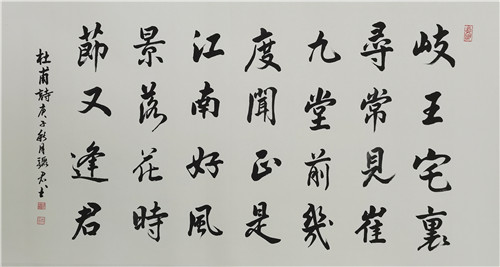 岐王宅裏
尋常見崔
九堂前幾
度聞正是
江南好風
景落花時
節又逢君
杜甫詩庚子秋月